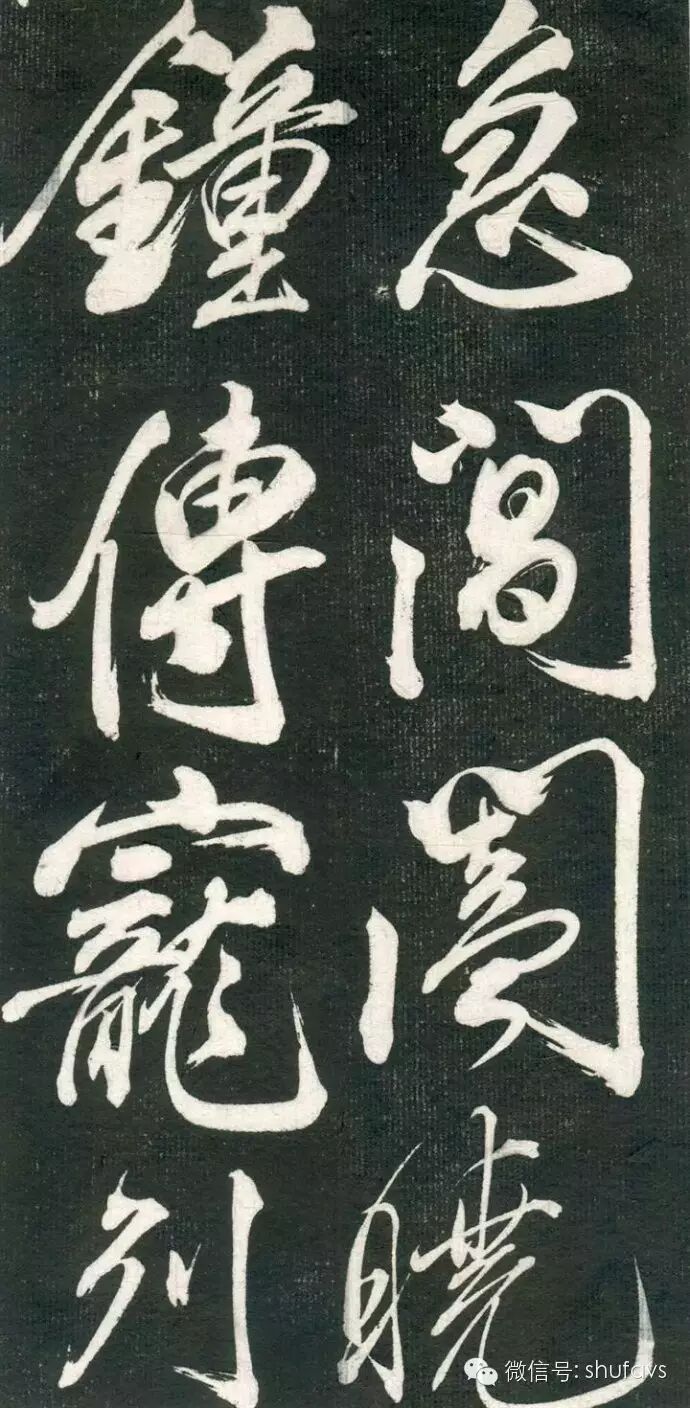 急閶闔曉
鐘傳寵列
微信号: shufavs